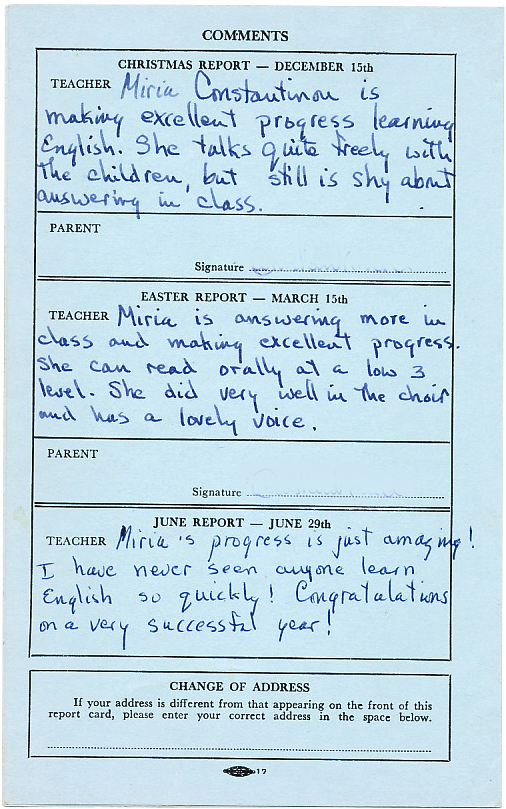 COMMENTS
CHRISTMAS REPORT — DECEMBER 15th
TEACHER Miria Constantinou is
making excellent progress learning
English. She talks quite freely with
the children, but still is shy about
answering in class.
PARENT
Signature
EASTER REPORT — MARCH 15th
TEACHER Miria is answering more in
class and making excellent progress.
She can read orally at a low 3
level. She did very well in the choir
and has a lovely voice.
PARENT
Signature
JUNE REPORT — JUNE 29th
TEACHER Miria's progress is just amazing!
I have never seen anyone learn
English so quickly! Congratulations
on a very successful year!
CHANGE OF ADDRESS
If your address is different from that appearing on the front of this
report card, please enter your correct address in the space below.
17